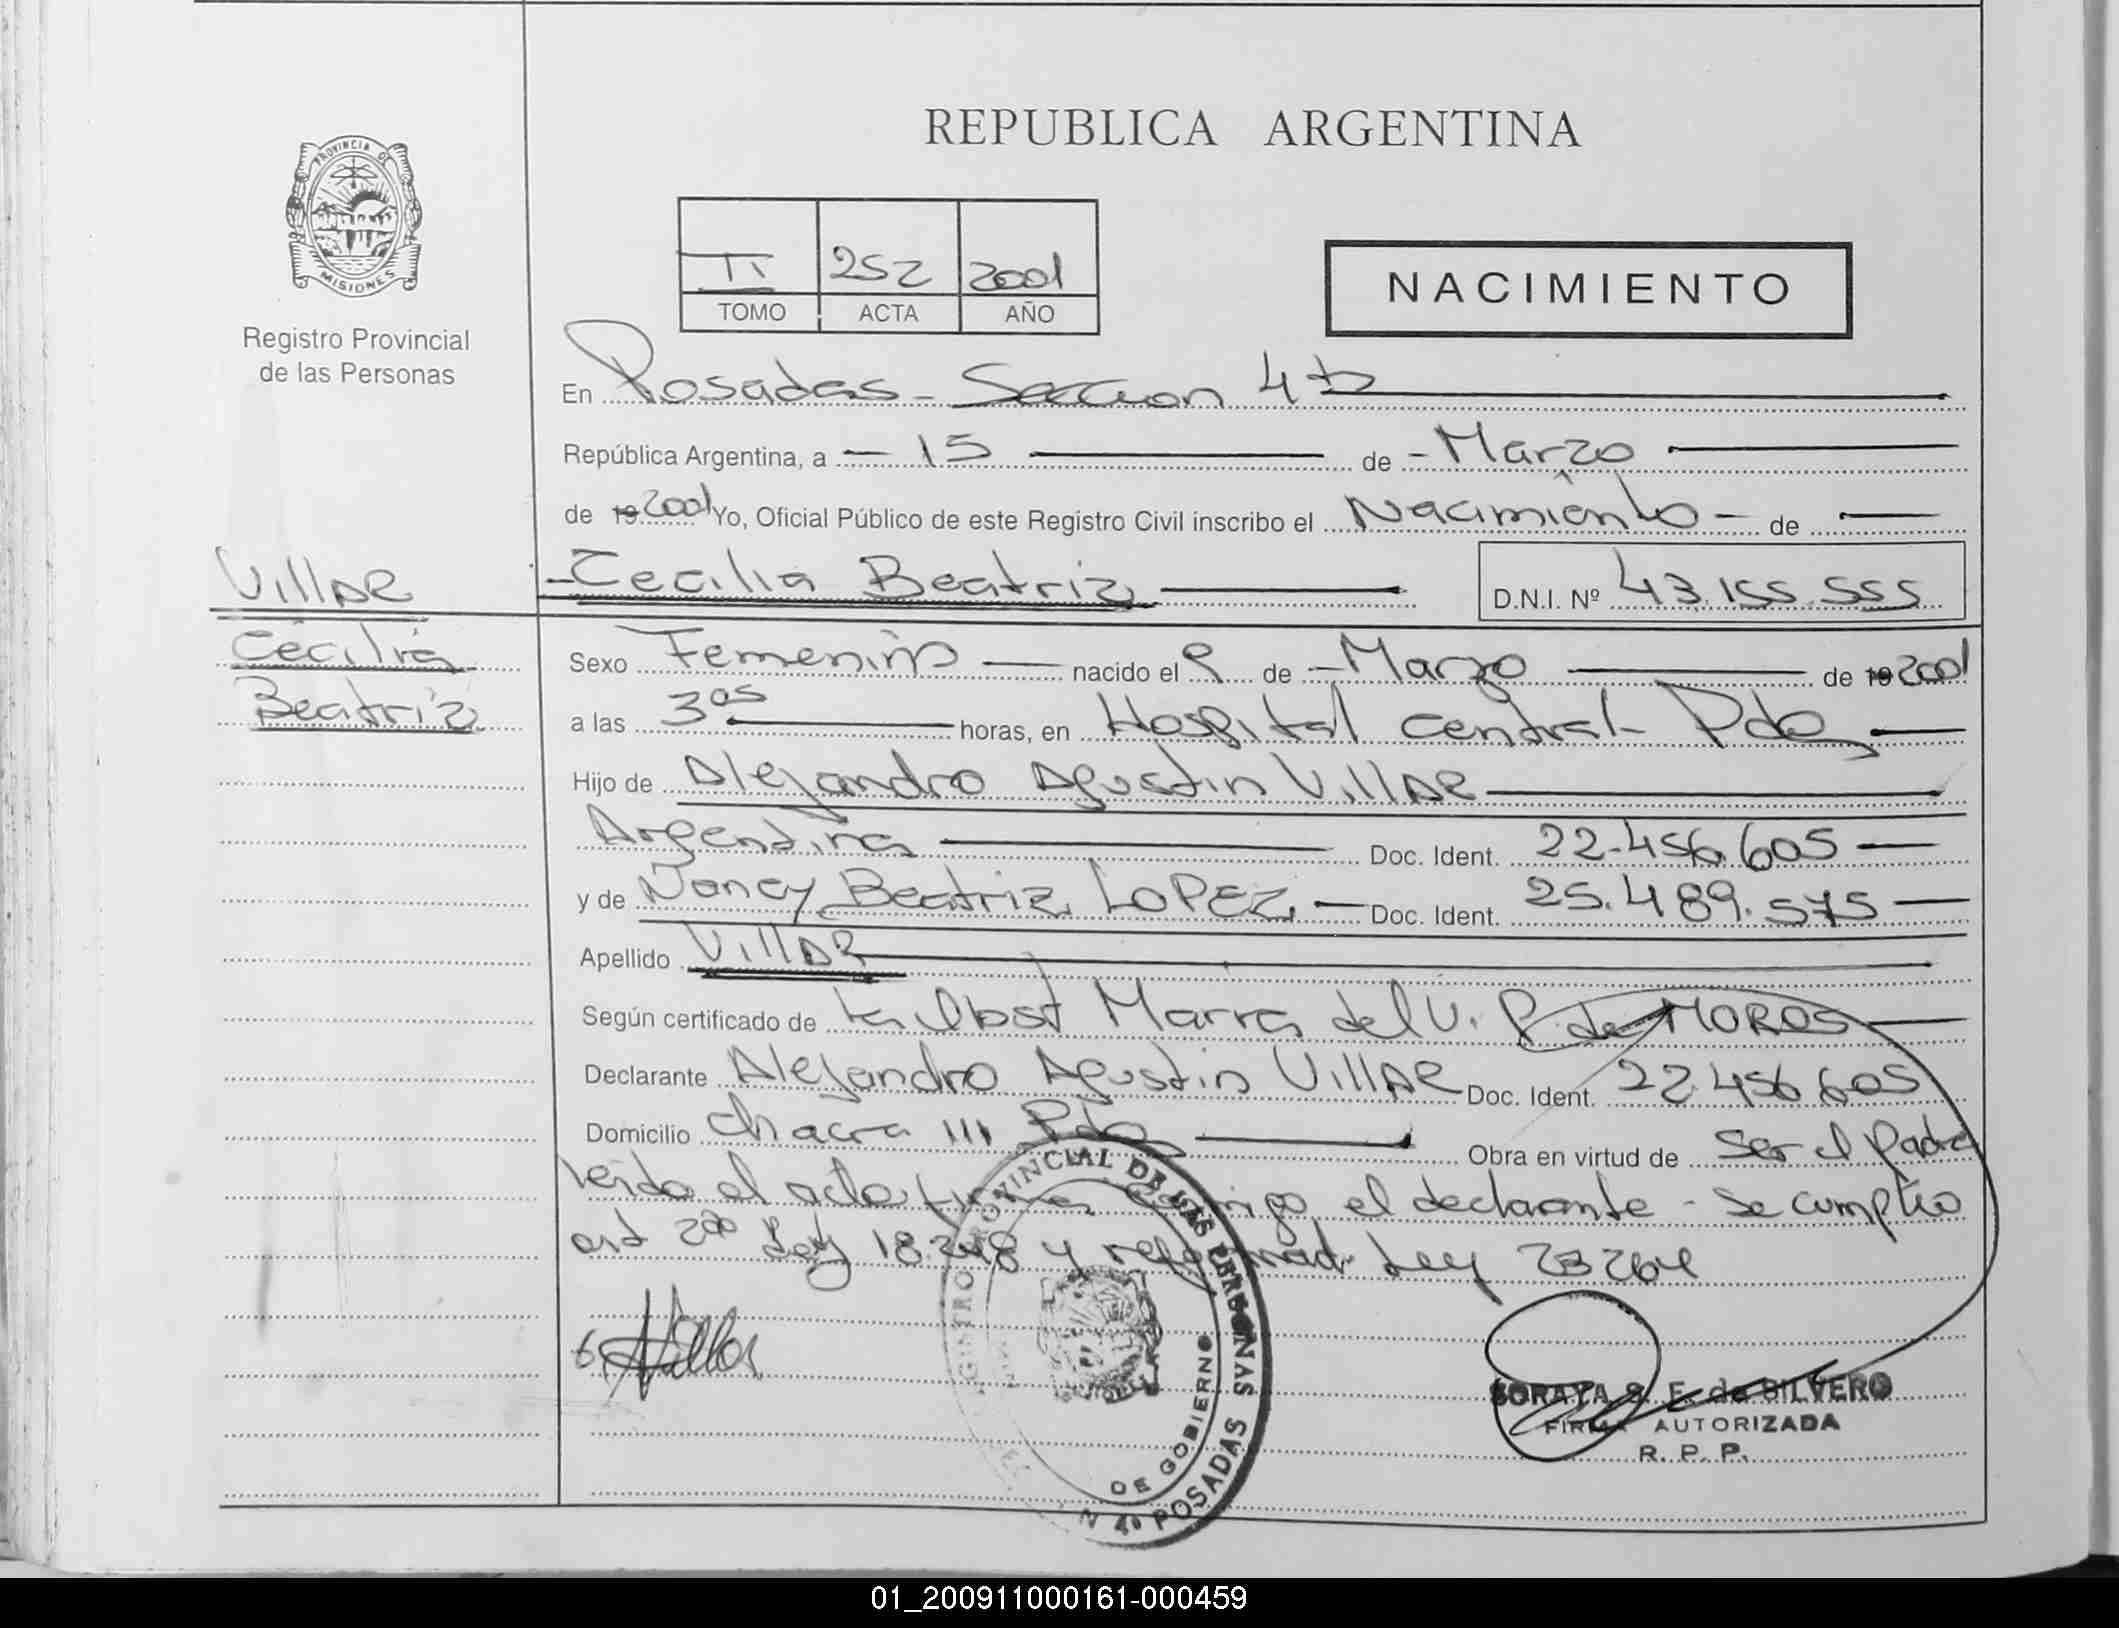 REPUBLICA ARGENTINA
PROVINCIA DE
MISIONES
Registro Provincial
de las Personas
II 252 2001
TOMO ACTA AÑO
NACIMIENTO
En Posadas - Seccion 4ta
República Argentina, a - 15 de - Marzo
de 19 2001 Yo, Oficial Público de este Registro Civil inscribo el Nacimiento - de -
VillAR
- Cecilia Beatriz D.N.I. Nº 43.155.555
Cecilia
Beatriz
Sexo Femenino nacido el 9 de - Marzo de 19 2001
a las 3 05 horas, en Hospital Central - Pdas
Hijo de Alejandro Agustin VillAR
Argentina Doc. Ident. 22.456.605
y de Nancy Beatriz LOPEZ Doc. Ident. 25.489.575
Apellido VillAR
Según certificado de la Obst Marra del V. P. de MOROS
Declarante Alejandro Agustin VillAR Doc. Ident. 22.456.605
Domicilio Chacra 111 Pdas Obra en virtud de Ser el Padre
leida el acta, firma conmigo el declarante - Se cumplio
art Ley 18.248 y Ley 23264
REGISTRO PROVINCIAL DE LAS PERSONAS
DE GOBIERNO
N 4º POSADAS
SORAYA S. F. de SILVERO
FIRMA AUTORIZADA
R. P. P.
01_200911000161-000459